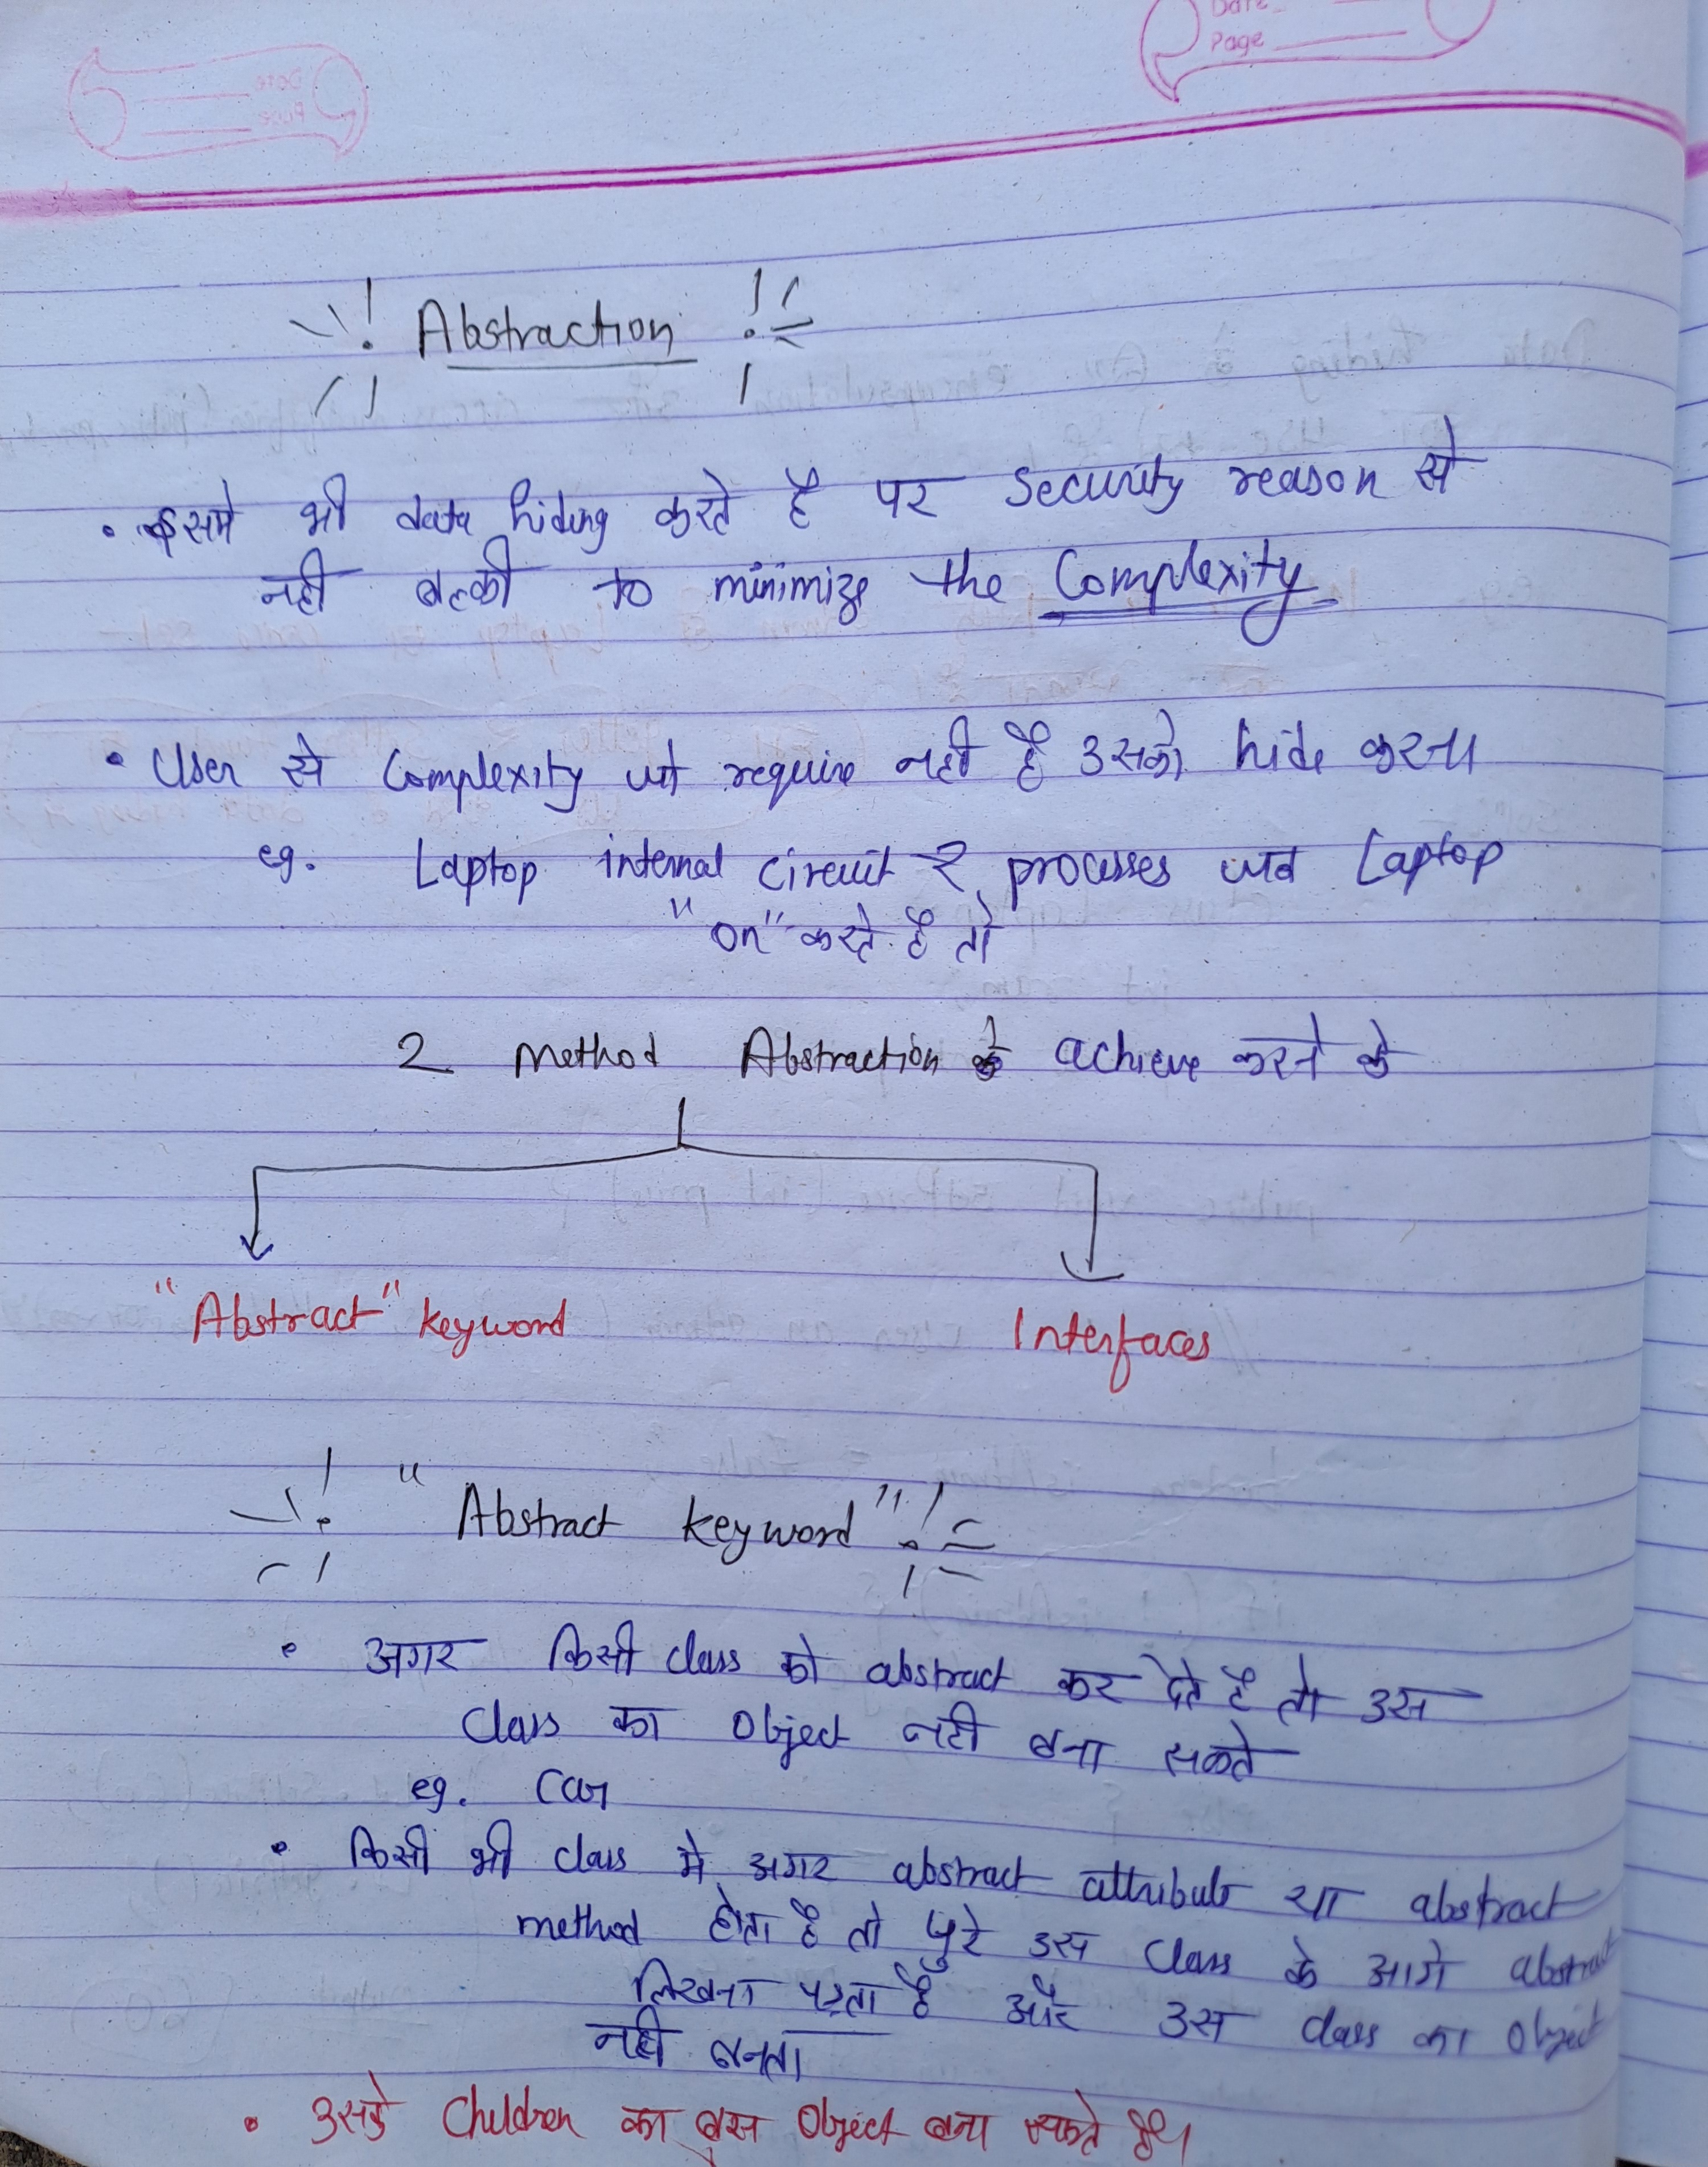 Date
Page
Abstraction
• इसमे भी data hiding करते है पर Security reason से
नही बल्की to minimize the Complexity
• User से Complexity जो require नही है उसको hide करना
eg. Laptop internal circuit & processes जब Laptop
"on" करते है तो
2 method Abstraction के achieve करने के
"Abstract" keyword Interfaces
"Abstract keyword"
• अगर किसी class को abstract कर देते है तो उस
Class का Object नही बना सकते
eg. Car
• किसी भी class मे अगर abstract attribute या abstract
method होता है तो पुरे उस Class के आगे abstract
लिखना पड़ता है और उस class का Object
नही बनता
• उसके Children का बस Object बना सकते है।